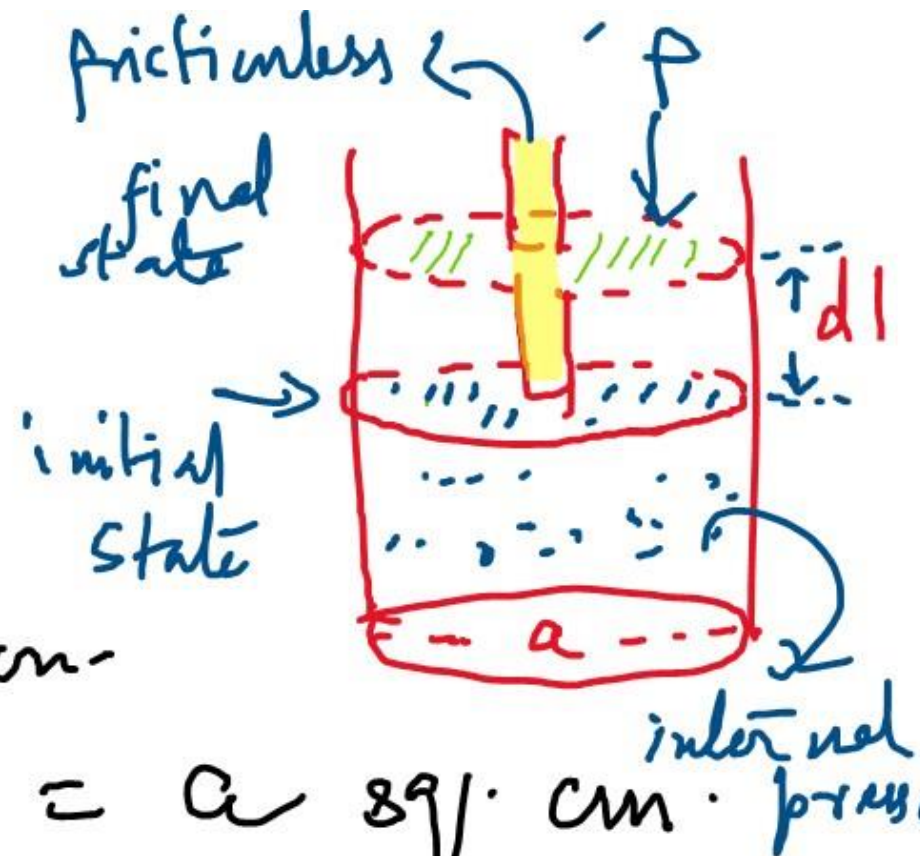 frictionless
P
final
state
dl
initial
state
a
internal
press
= a sq. cm.